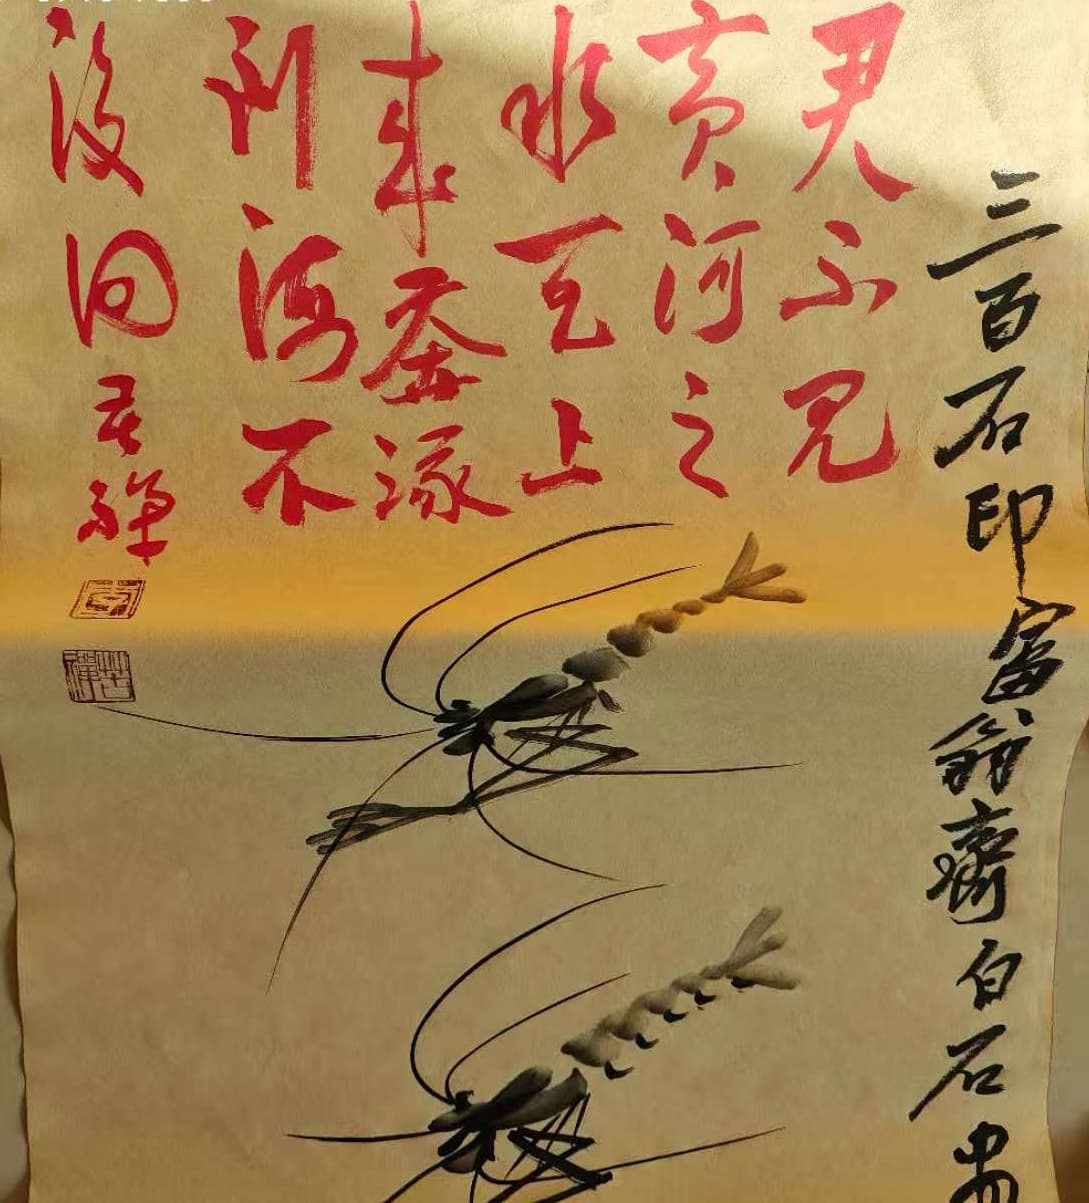 三百石印富翁齊白石
君不見
黄河之
水天上
来奔流
到海不
復回
苦禪